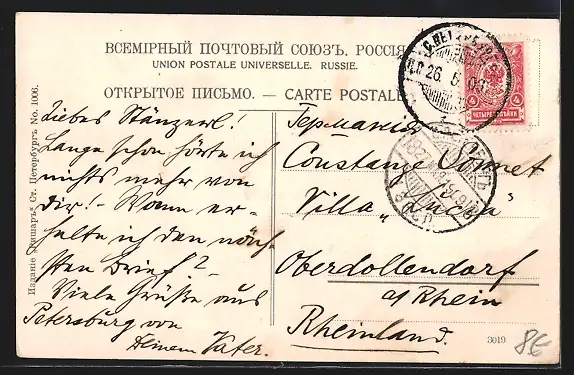 ВСЕМIРНЫЙ ПОЧТОВЫЙ СОЮЗЪ. РОССIЯ
UNION POSTALE UNIVERSELLE. RUSSIE.
ОТКРЫТОЕ ПИСЬМО. — CARTE POSTALE
Liebes Stänzerl!
Lange schon hörte ich
nichts mehr von
Dir! – Wann er-
halte ich den näch-
sten Brief?
Viele Grüße aus
Petersburg von
Deinem Vater.
Германія
Constanze
Villa
Oberdollendorf
a/ Rhein
Rheinland.
Изданіе „Ришаръ“ Ст. Петербургъ No. 1006.
С.ПЕТЕРБУРГ
26 5
4 4
ЧЕТЫРЕ КОПѢЙКИ
3019
8€